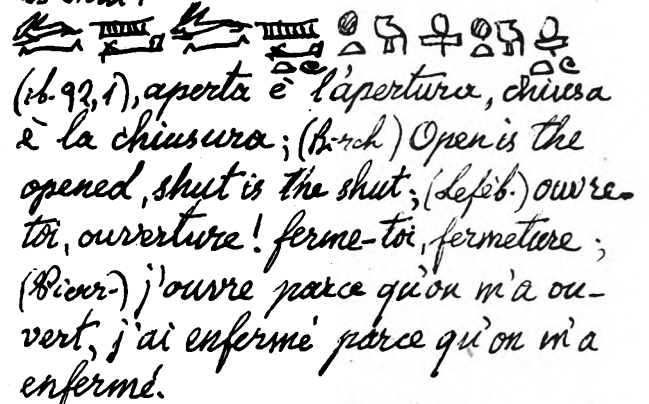 (ib. 92, 1), aperta è l'apertura, chiusa
è la chiusura; (Birch) Open is the
opened, shut is the shut; (Leféb.) ouvre-
toi, ouverture! ferme-toi, fermeture;
(Pierr-) j'ouvre parce qu'on m'a ou-
vert, j'ai enfermé parce qu'on m'a
enfermé.